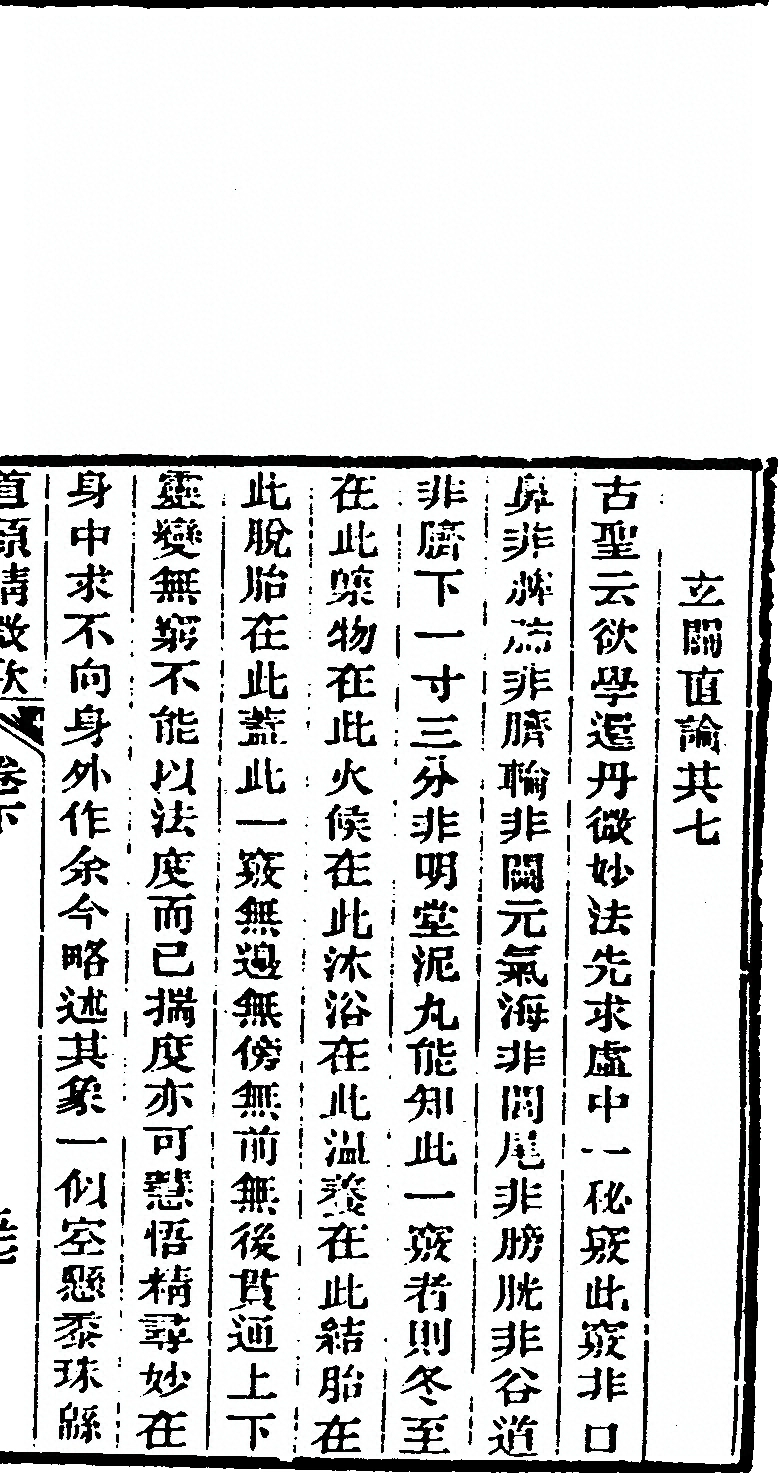 玄關直論其七
古聖云欲學還丹微妙法先求虛中一秘竅此竅非口
鼻非脾疏非臍輪非關元氣海非閭尾非膀胱非谷道
非臍下一寸三分非明堂泥丸能知此一竅者則冬至
在此藥物在此火候在此沐浴在此溫養在此結胎在
此脫胎在此蓋此一竅無邊無傍無前無後貫通上下
靈變無窮不能以法度而已揣度亦可慧悟精尋妙在
身中求不向身外作余今略述其象一似空懸黍珠緜
道原精微歌 卷下